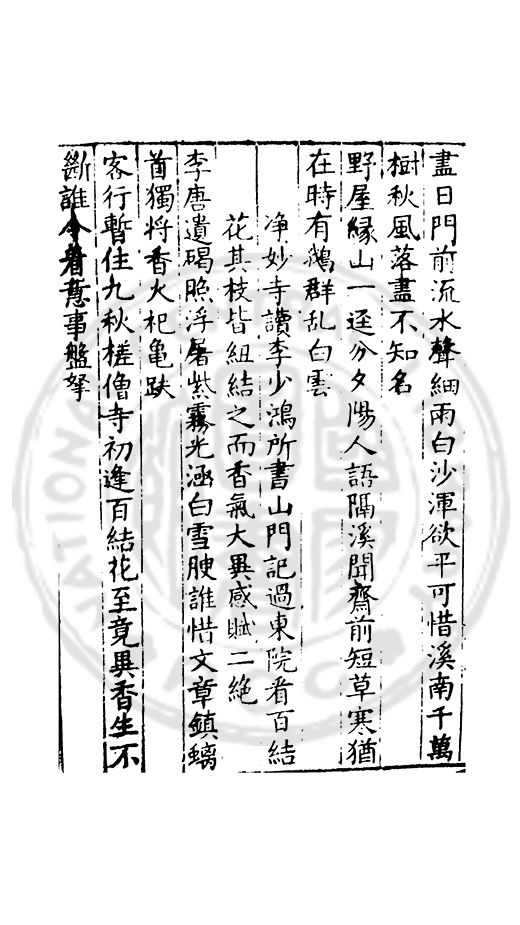 盡日門前流水聲細雨白沙渾欲平可惜溪南千萬
樹秋風落盡不知名
野屋緣山一逕分夕陽人語隔溪聞齋前短草寒猶
在時有鵝群乱白雲
净妙寺讀李少鴻所書山門記過東院看百結
花其枝皆紐結之而香氣大異感賦二絶
李唐遺碣照浮屠紫霧光涵白雪腴誰惜文章鎮螭
首獨将香火祀龜趺
客行暫住九秋槎僧寺初逢百結花至竟異香生不
斷誰令着意事盤拏